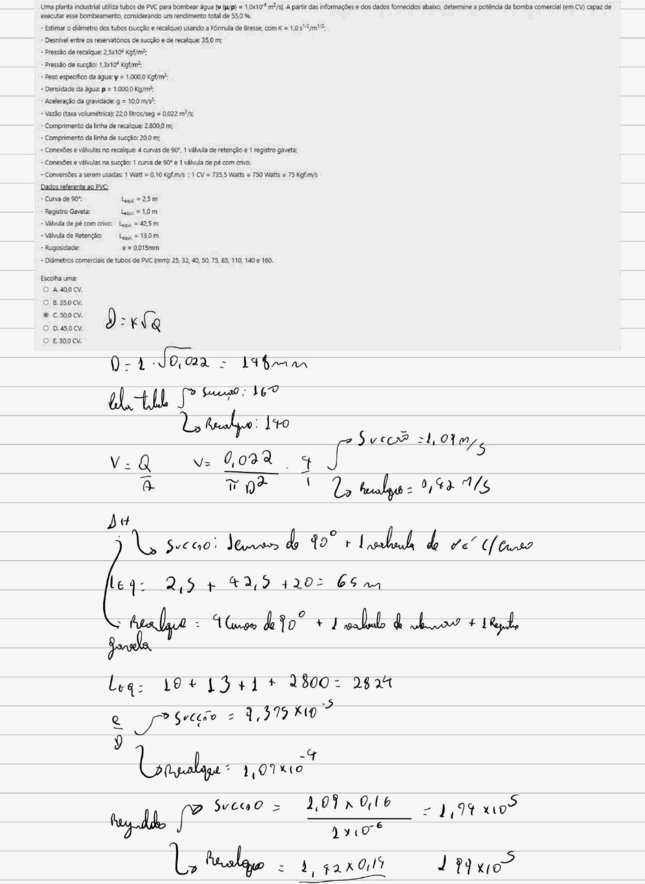 Uma planta industrial utiliza tubos de PVC para bombear água [ν (μ/ρ) = 1,0x10⁻⁶ m²/s]. A partir das informações e dos dados fornecidos abaixo, determine a potência da bomba comercial (em CV) capaz de
executar esse bombeamento, considerando um rendimento total de 55,0 %.
- Estimar o diâmetro dos tubos (sucção e recalque) usando a Fórmula de Bresse, com K = 1,0 s¹/²/m¹/²;
- Desnível entre os reservatórios de sucção e de recalque: 35,0 m;
- Pressão de recalque: 2,5x10⁴ Kgf/m²;
- Pressão de sucção: 1,3x10⁴ Kgf/m²;
- Peso específico da água: γ = 1.000,0 Kgf/m³;
- Densidade da água: ρ = 1.000,0 Kg/m³;
- Aceleração da gravidade: g = 10,0 m/s²;
- Vazão (taxa volumétrica): 22,0 litros/seg = 0,022 m³/s;
- Comprimento da linha de recalque: 2.800,0 m;
- Comprimento da linha de sucção: 20,0 m;
- Conexões e válvulas no recalque: 4 curvas de 90°, 1 válvula de retenção e 1 registro gaveta;
- Conexões e válvulas na sucção: 1 curva de 90° e 1 válvula de pé com crivo.
- Conversões a serem usadas: 1 Watt = 0,10 Kgf.m/s ; 1 CV = 735,5 Watts ≈ 750 Watts ≈ 75 Kgf.m/s
Dados referente ao PVC:
- Curva de 90°: Lequi. = 2,5 m
- Registro Gaveta: Lequi. = 1,0 m
- Válvula de pé com crivo: Lequi. = 42,5 m
- Válvula de Retenção: Lequi. = 13,0 m
- Rugosidade: e = 0,015mm
- Diâmetros comerciais de tubos de PVC (mm): 25, 32, 40, 50, 75, 85, 110, 140 e 160.
Escolha uma:
A. 40,0 CV.
B. 35,0 CV.
C. 50,0 CV.
D. 45,0 CV.
E. 30,0 CV.
D = K√Q
D = 1 · √0,022 = 148mm
Pela tabela Sucção: 160
Recalque: 140
V = Q/A V = 0,022/πD² · 4/1 Sucção = 1,09 m/s
Recalque = 1,42 m/s
ΔH
Sucção: 1 curva de 90° + 1 valvula de pé c/ crivo
Leq = 2,5 + 42,5 + 20 = 65 m
Recalque = 4 curvas de 90° + 1 valvula de retenção + 1 Registro
gaveta
Leq = 10 + 13 + 1 + 2800 = 2824
e/D Sucção = 9,375 ×10⁻⁵
Recalque = 1,07 ×10⁻⁴
Reynolds Sucção = 1,09 × 0,16 / 1×10⁻⁶ = 1,74 ×10⁵
Recalque = 1,42 × 0,14 1,99 ×10⁵